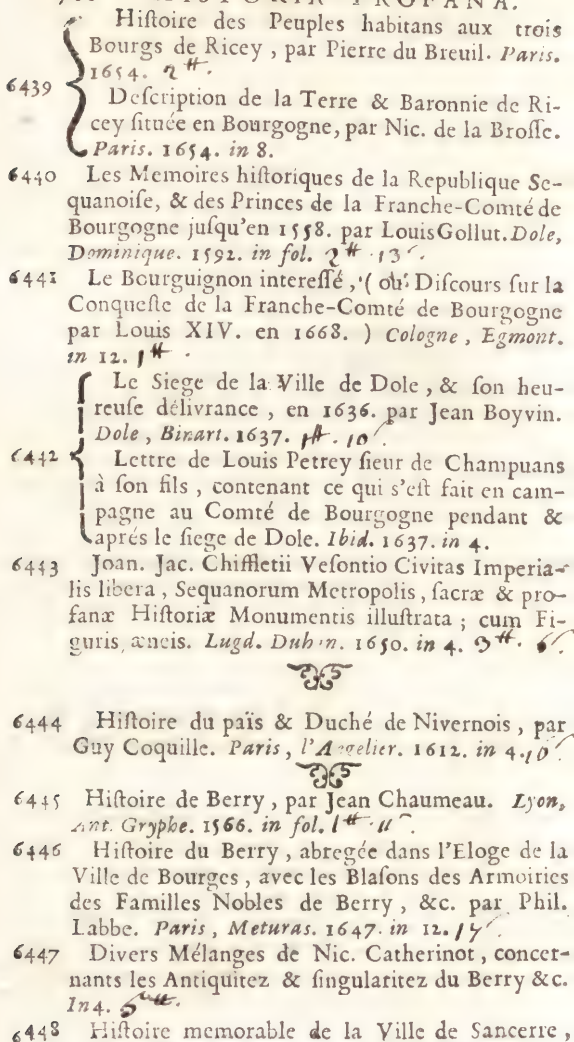 HISTORIA PROFANA.
Hiſtoire des Peuples habitans aux trois
Bourgs de Ricey, par Pierre du Breuil. Paris.
1654. 2ᵗᵗ.
6439
Deſcription de la Terre & Baronnie de Ri-
cey ſituée en Bourgogne, par Nic. de la Broſſe.
Paris. 1654. in 8.
6440 Les Memoires hiſtoriques de la Republique Se-
quanoiſe, & des Princes de la Franche-Comté de
Bourgogne juſqu'en 1558. par Louis Gollut. Dole,
Dominique. 1592. in fol. 2ᵗᵗ 13ˢ.
6441 Le Bourguignon intereſſé, (ou Diſcours ſur la
Conqueſte de la Franche-Comté de Bourgogne
par Louis XIV. en 1668. ) Cologne, Egmont.
in 12. 1ᵗᵗ.
Le Siege de la Ville de Dole, & ſon heu-
reuſe délivrance, en 1636. par Jean Boyvin.
Dole, Binart. 1637. 1ᵗᵗ. 10ˢ.
6442
Lettre de Louis Petrey ſieur de Champuans
à ſon fils, contenant ce qui s'eſt fait en cam-
pagne au Comté de Bourgogne pendant &
aprés le ſiege de Dole. Ibid. 1637. in 4.
6443 Joan. Jac. Chiffletii Veſontio Civitas Imperia-
lis libera, Sequanorum Metropolis, ſacræ & pro-
fanæ Hiſtoriæ Monumentis illuſtrata; cum Fi-
guris æneis. Lugd. Duhan. 1650. in 4. 3ᵗᵗ. 6ˢ.
6444 Hiſtoire du païs & Duché de Nivernois, par
Guy Coquille. Paris, l'Angelier. 1612. in 4. 10ˢ.
6445 Hiſtoire de Berry, par Jean Chaumeau. Lyon,
Ant. Gryphe. 1566. in fol. 1ᵗᵗ. 11ˢ
6446 Hiſtoire du Berry, abregée dans l'Eloge de la
Ville de Bourges, avec les Blaſons des Armoiries
des Familles Nobles de Berry, &c. par Phil.
Labbe. Paris, Meturas. 1647. in 12.
6447 Divers Mélanges de Nic. Catherinot, concer-
nants les Antiquitez & ſingularitez du Berry &c.
In 4. 5ᵗᵗ.
6448 Hiſtoire memorable de la Ville de Sancerre,